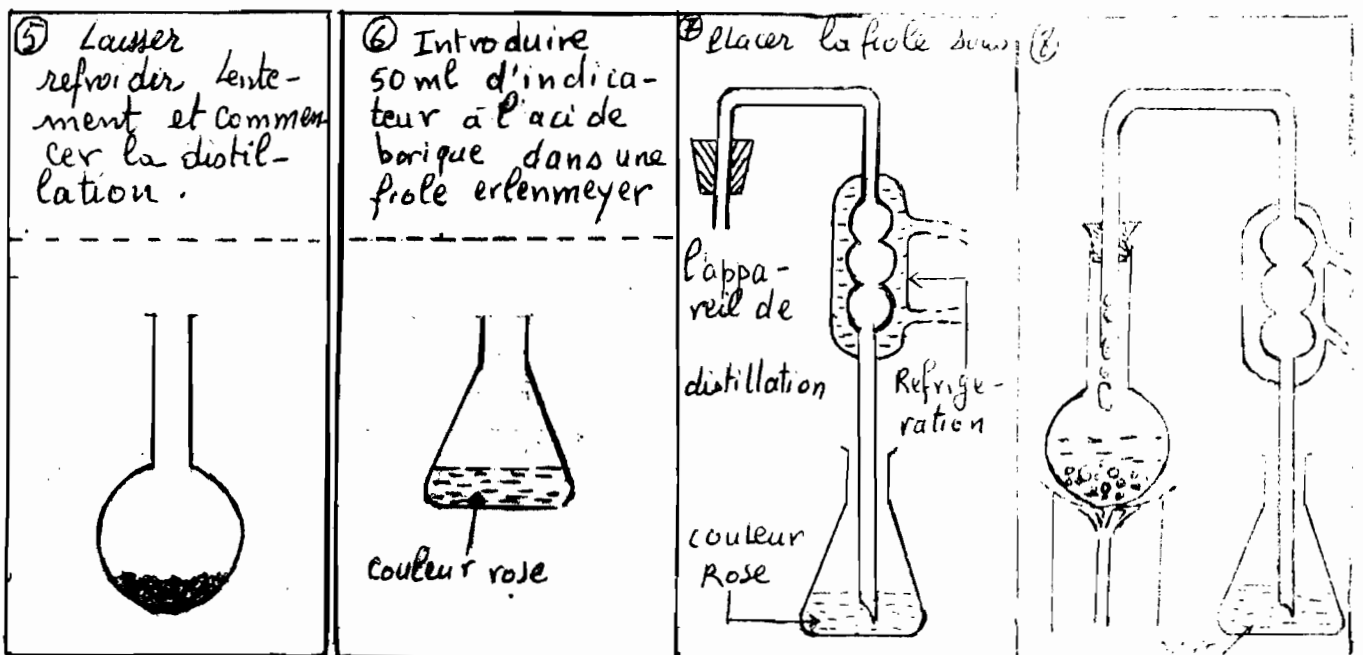 ⑤ Laisser
refroidir lente-
ment et commen
cer la distil-
lation.
⑥ Introduire
50 ml d'indica-
teur à l'acide
borique dans une
fiole erlenmeyer
couleur rose
⑦ Placer la fiole sous
l'appa-
reil de
distillation
Refrige-
ration
couleur
Rose
⑧